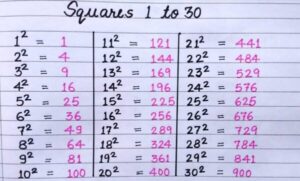 Squares 1 to 30
1² = 1
2² = 4
3² = 9
4² = 16
5² = 25
6² = 36
7² = 49
8² = 64
9² = 81
10² = 100
11² = 121
12² = 144
13² = 169
14² = 196
15² = 225
16² = 256
17² = 289
18² = 324
19² = 361
20² = 400
21² = 441
22² = 484
23² = 529
24² = 576
25² = 625
26² = 676
27² = 729
28² = 784
29² = 841
30² = 900